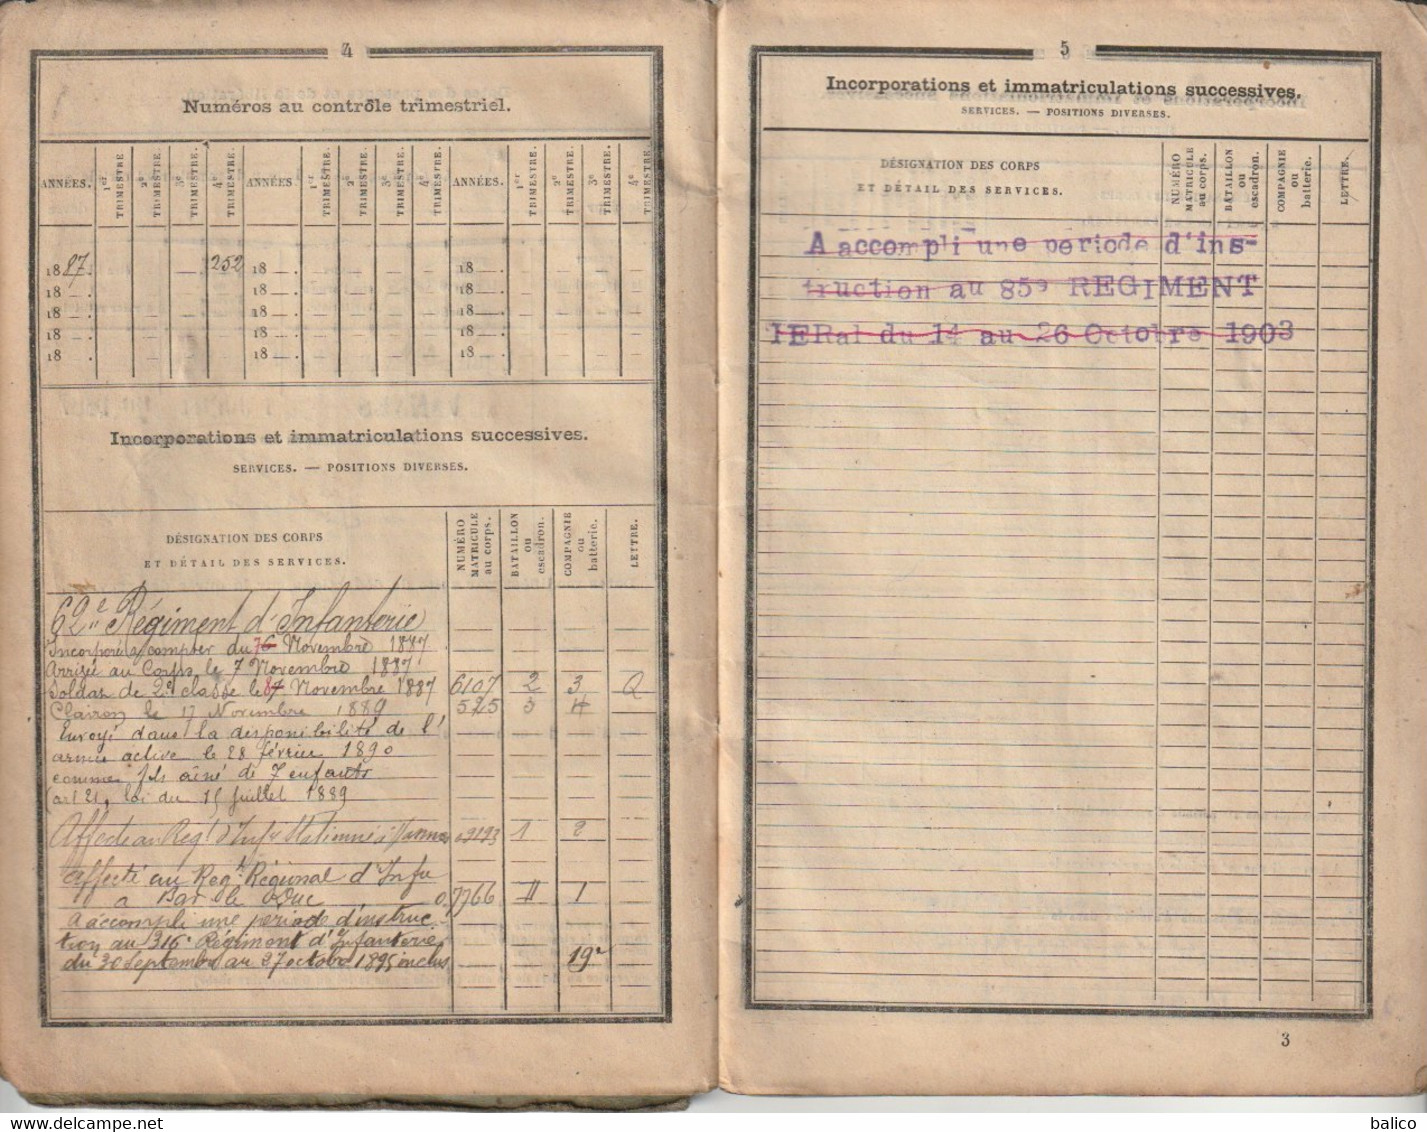 4
Numéros au contrôle trimestriel.
ANNÉES. 1er TRIMESTRE 2e TRIMESTRE. 3e TRIMESTRE. 4e TRIMESTRE. ANNÉES 1er TRIMESTRE. 2e TRIMESTRE. 3e TRIMESTRE. 4e TRIMESTRE. ANNÉES. 1er TRIMESTRE. 2e TRIMESTRE. 3e TRIMESTRE. 4e TRIMESTRE.
1887. 252 18 . 18 .
18 . 18 . 18 .
18 . 18 . 18 .
18 . 18 . 18 .
18 . 18 . 18 .
Incorporations et immatriculations successives.
SERVICES. — POSITIONS DIVERSES.
DÉSIGNATION DES CORPS
ET DÉTAIL DES SERVICES.
NUMÉRO MATRICULE au corps.
BATAILLON ou escadron.
COMPAGNIE ou batterie.
LETTRE.
62e Régiment d'Infanterie
Incorporé à compter du Novembre 1887
Arrivé au Corps le 7 Novembre 1887
Soldat de 2e classe le Novembre 1887 6107 2 3 Q
Clairon le 17 Novembre 1889 525 3 4
Envoyé dans la disponibilité de l'
armée active le 28 février 1890
comme fils aîné de 7 enfants
(art 21, loi du 15 Juillet 1889
Affecté au Régt d'Infie Stationné à 1 2
affecté au Regt Régional d'Infie
à Bar le Duc 07766 II 1
A accompli une période d'instruc
tion au 316e Régiment d'Infanterie
du 30 Septembre au 27 octobre 1895 inclus 19e
5
Incorporations et immatriculations successives.
SERVICES. — POSITIONS DIVERSES.
DÉSIGNATION DES CORPS
ET DÉTAIL DES SERVICES.
NUMÉRO MATRICULE au corps.
BATAILLON ou escadron.
COMPAGNIE ou batterie.
LETTRE.
A accompli une periode d'ins-
truction au 85e REGIMENT
IERal du 14 au 26 Octobre 1903
3
delcampe.net
balico